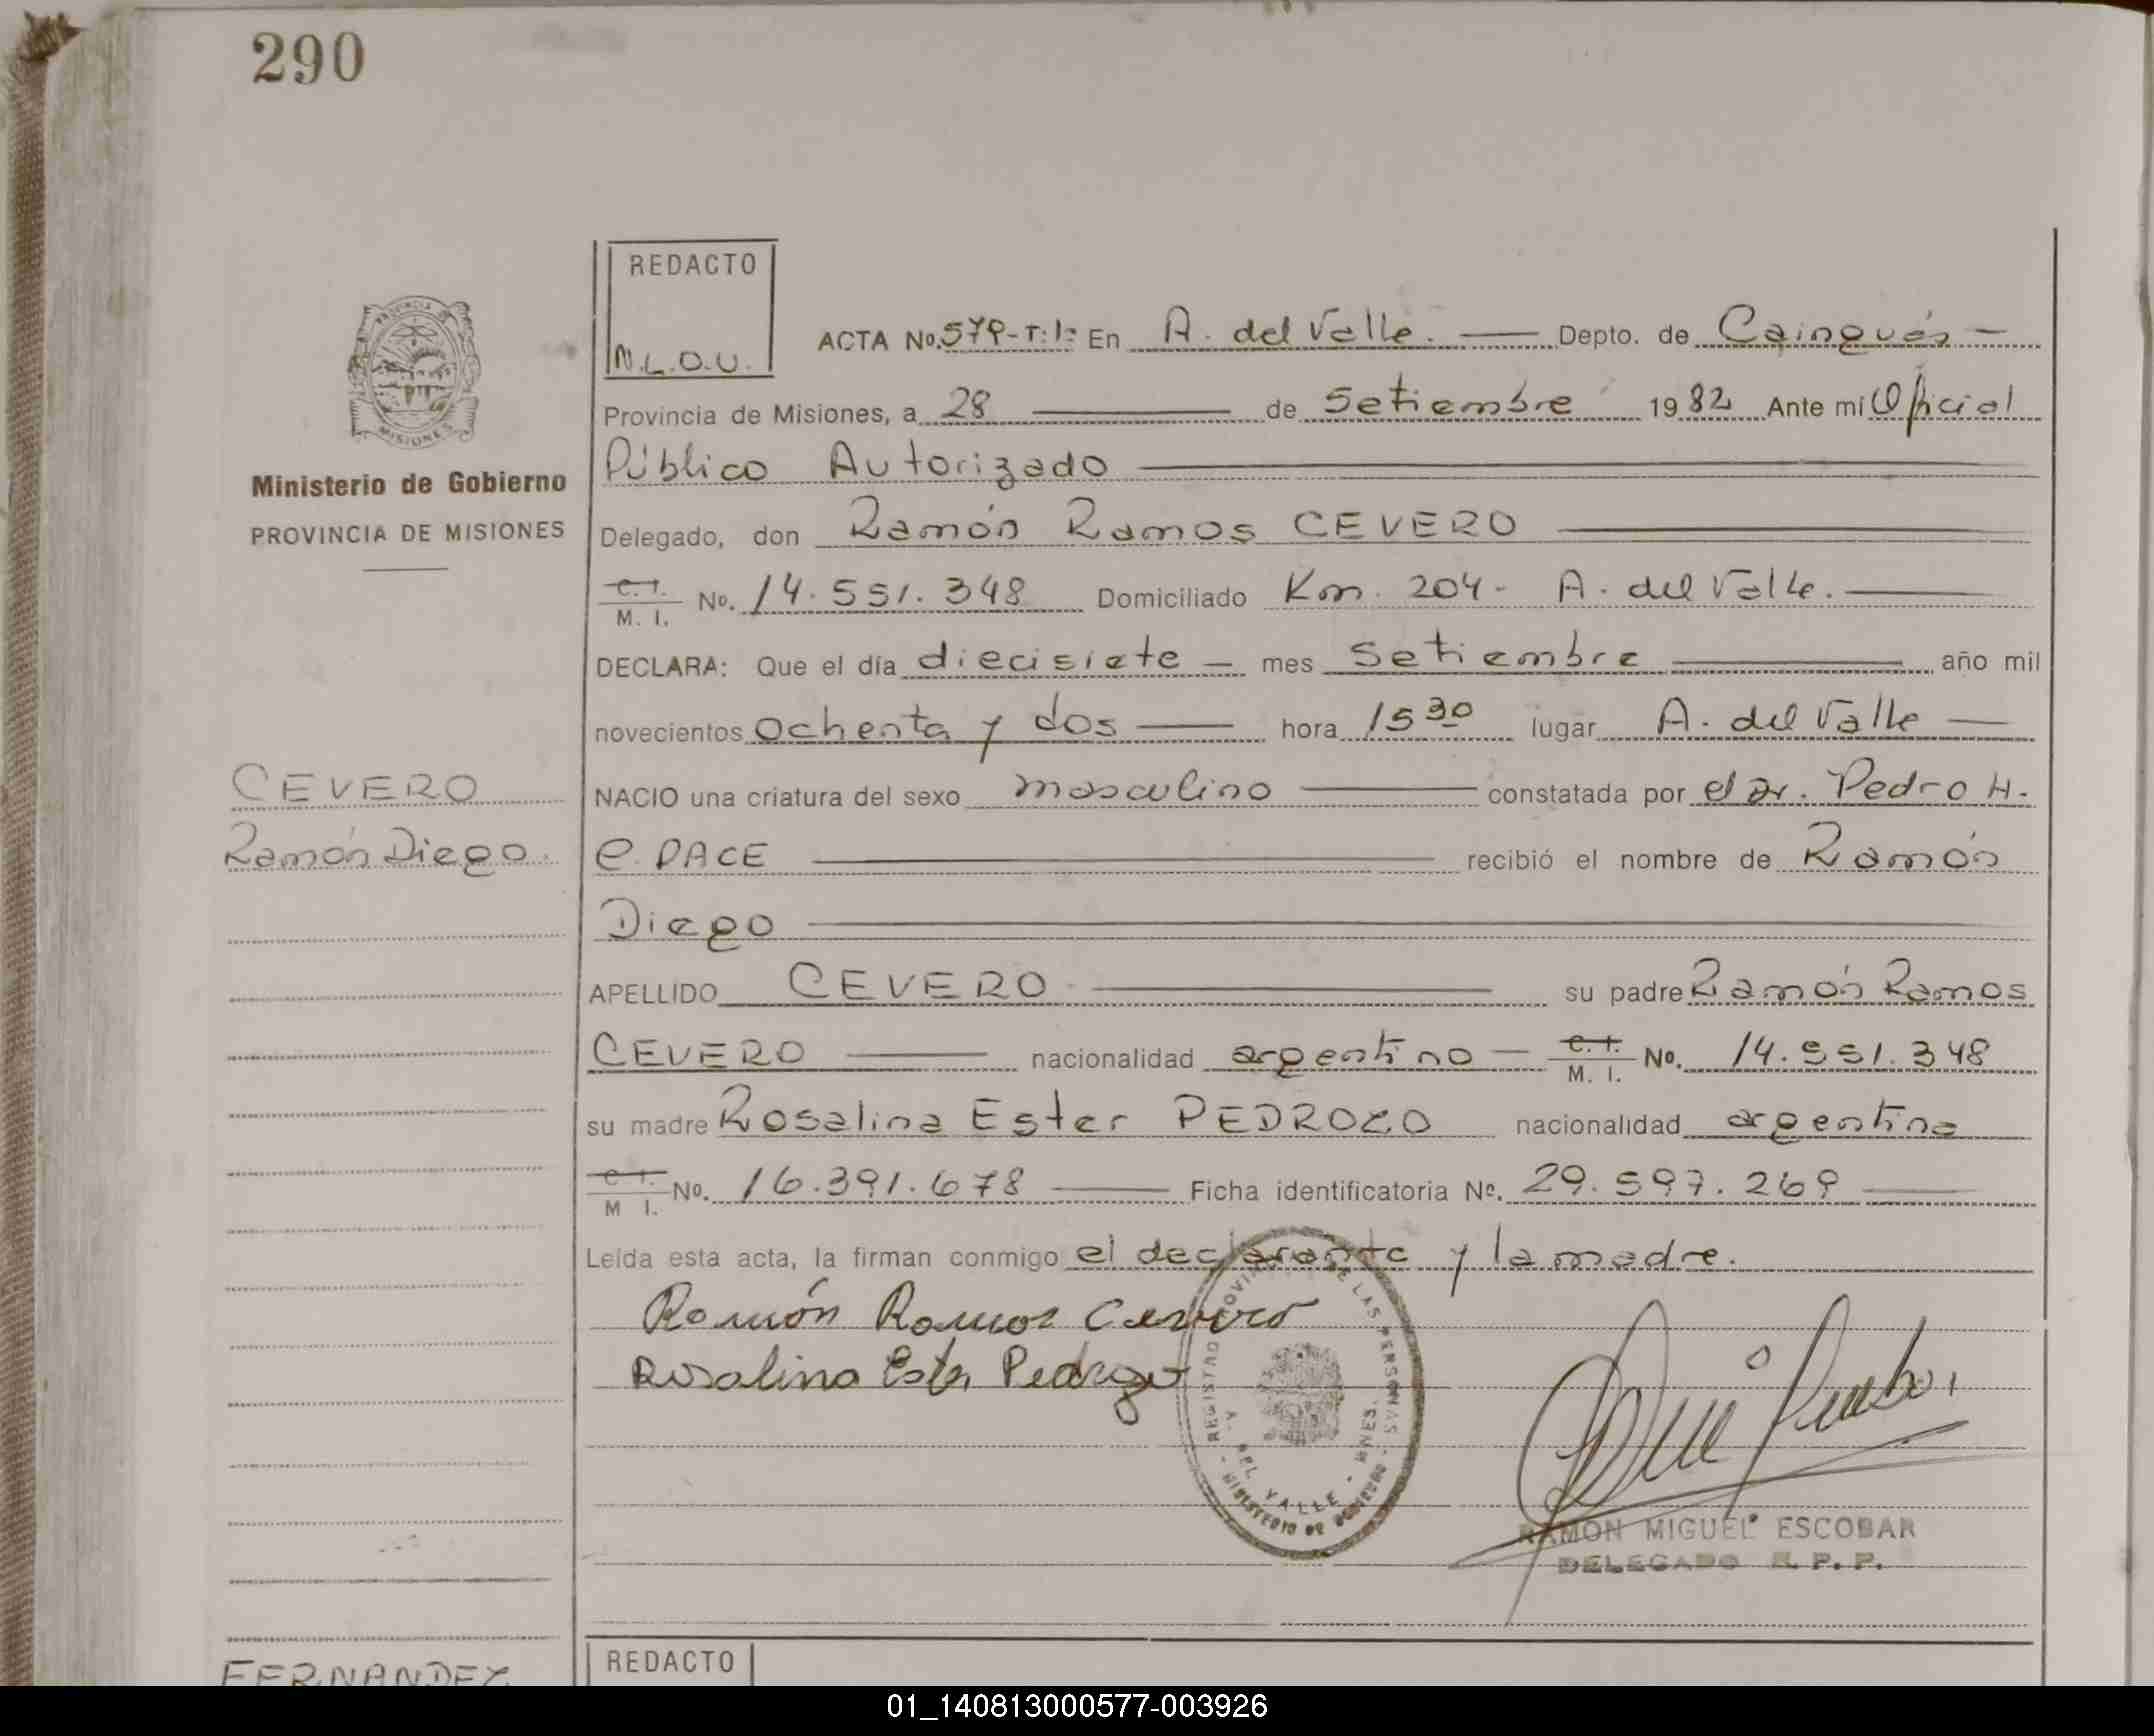 290
REDACTO
N.L.O.U.
ACTA No. 579-T:1: En A. del Valle. Depto. de Cainguás
Provincia de Misiones, a 28 de Setiembre 1982 Ante mi Oficial
Público Autorizado
MISIONES
Ministerio de Gobierno
PROVINCIA DE MISIONES
Delegado, don Ramón Ramos CEVERO
C. I.
M. I. No. 14.551.348 Domiciliado Km. 204- A. del Valle.
DECLARA: Que el día diecisiete mes Setiembre año mil
novecientos ochenta y dos hora 15 30 lugar A. del Valle
CEVERO
Ramón Diego.
NACIO una criatura del sexo masculino constatada por el Dr. Pedro H.
C. PACE recibió el nombre de Ramón
Diego
APELLIDO CEVERO su padre Ramón Ramos
CEVERO nacionalidad argentino C. I. M. I. No. 14.551.348
su madre Rosalina Ester PEDROZO nacionalidad argentina
C. I.
M I. No. 16.391.678 Ficha identificatoria No. 29.597.269
Leída esta acta, la firman conmigo el declarante y la madre.
Ramón Ramos Cevero
Rosalina Ester Pedrozo
DE LAS PERSONAS
DEL VALLE - MNES.
MINISTERIO DE GOBIERNO
RAMON MIGUEL ESCOBAR
DELEGADO R. P. P.
REDACTO
FERNANDEZ
01_140813000577-003926